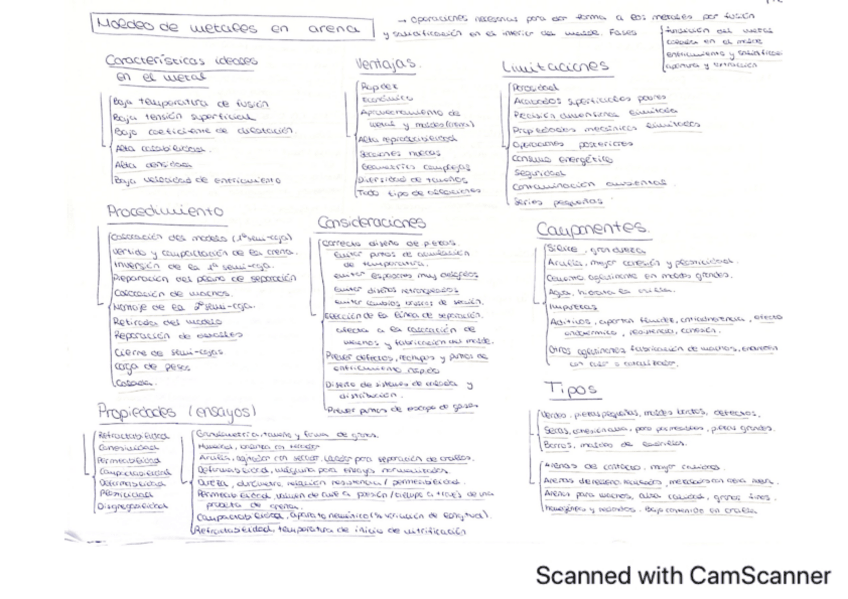 Moldeo de metales en arena
→ operaciones necesarias para dar forma a los metales por fusión
y solidificación en el interior del molde. Fases
fundición del metal
colada en el molde
enfriamiento y solidific
apertura y extracción
Características ideales
en el metal
Baja temperatura de fusión
Baja tensión superficial
Bajo coeficiente de dilatación.
Alta colabilidad.
Alta densidad
Baja velocidad de enfriamiento
Ventajas.
Rapidez
Económico
Aprovechamiento de
metal y moldes (arena)
Alta reproducibilidad
Secciones huecas
Geometrías complejas
Diversidad de tamaños
Todo tipo de aleaciones
Limitaciones
Porosidad
Acabados superficiales pobres
Precisión dimensional limitada
Propiedades mecánicas limitadas
Operaciones posteriores
Consumo energético
Seguridad
Contaminación ambiental
Series pequeñas.
Procedimiento
Colocación del modelo (1ª semi-caja)
Vertido y compactación de la arena.
Inversión de la 1ª semi-caja.
Preparación del plano de separación
Colocación de machos.
Montaje de la 2ª semi-caja.
Retirada del modelo
Reparación de detalles
Cierre de semi-cajas
Carga de pesos
Colada.
Consideraciones
Correcto diseño de piezas.
Evitar puntos de acumulación
de temperatura.
Evitar espesores muy delgados
Evitar diseños
Evitar cambios bruscos de sección.
Elección de la línea de separación.
afecta a la colocación de
machos y fabricación del molde.
Prever defectos, rechupes y puntos de
enfriamiento rápido
Diseño de sistemas de colada y
distribución.
Prever puntos de escape de gases
Componentes.
Sílice, grandeza
Arcilla, mejor cohesión y plasticidad.
Cemento aglomerante en moldes grandes.
Agua, hidrata la arcilla.
Impurezas
Aditivos, aportan fluidez, antiadherencia, efecto
endotérmico, resistencia, cohesión.
Otros aglomerantes fabricación de machos, endurecen
con calor o catalizador.
Propiedades (ensayos)
Refractabilidad
Cohesividad
Permeabilidad
Compactabilidad
Deformabilidad
Plasticidad
Disgregabilidad
Granulometría, tamaño y forma de grano.
Humedad, balanza con secador
Arcilla, agitador con secador, lavador para separación de arcillas.
Deformabilidad, máquina para ensayos normalizados.
Dureza, durómetro relación resistencia / permeabilidad.
Permeabilidad, volumen de aire a presión / tiempo a través de una
probeta de arena.
Compactabilidad, aparato neumático (% variación de longitud).
Refractabilidad, temperatura de inicio de vitrificación
Tipos
Verdes, piezas pequeñas, moldes blandos, defectos.
Secas, cohesionadas, pero permeables, piezas grandes.
Barros, moldeo de
Arenas de contacto, mayor calidad.
Arenas de relleno recicladas, mezcladas con otra arena.
Arenas para machos, alta calidad, granos finos,
homogéneos y redondos. Bajo contenido en arcilla
Scanned with CamScanner